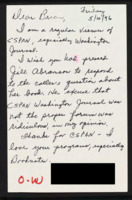 Friday
Dear Brian, 5/10/96
I am a regular viewer of
CSPAN, especially Washington
Journal.
I wish you had pressed
Jill Abramson to respond
to the caller's question about
her book. Her excuse that
CSPAN Washington Journal was
not the proper forum was
ridiculous, in my opinion.
Thanks for CSPAN - I
love your programs, especially
Booknotes.
O-W